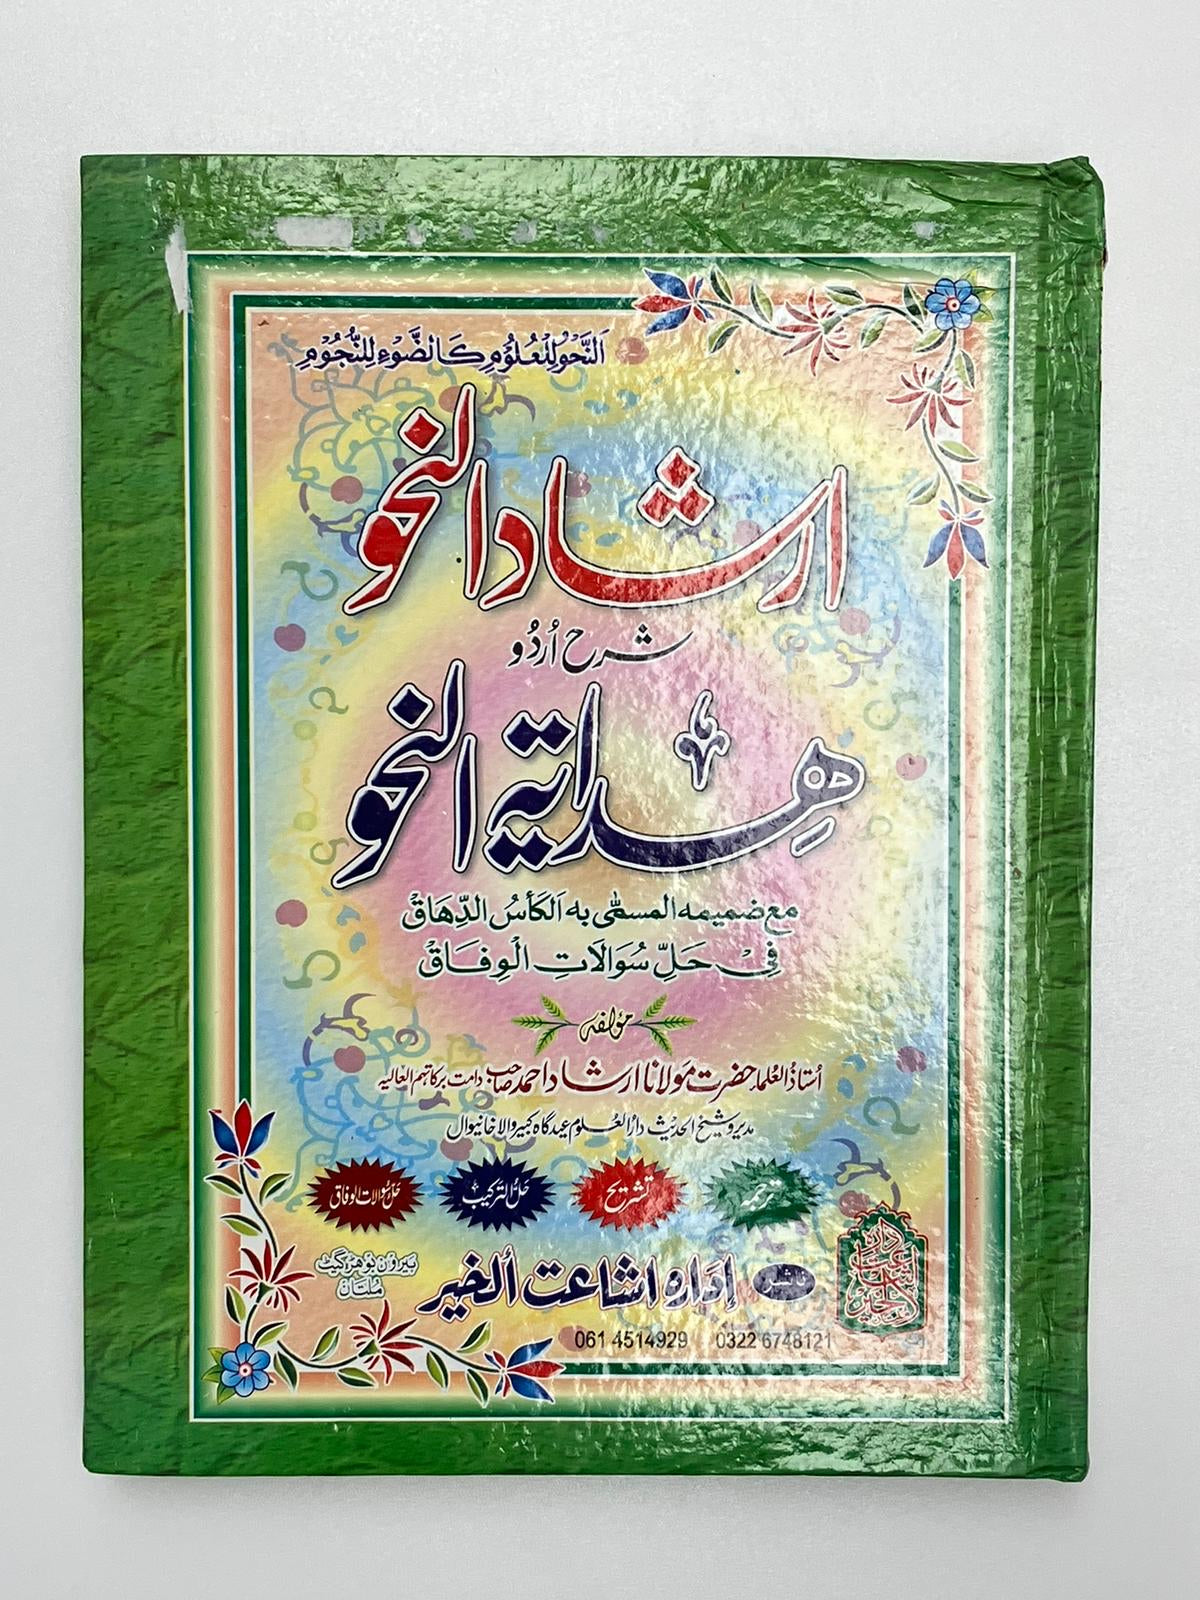 اَلنَّحْوُ لِلْعُلُوْمِ كَالضَّوْءِ لِلنُّجُوْمِ
ارشاد النحو
شرح اُردُو
ھدایۃ النحو
مع ضمیمه المسمّٰی به اَلکَأسُ الدِّهَاقْ
فِیْ حَلِّ سُوَالَاتِ الْوِفَاقْ
مؤلفہ
اُستاذُ العُلماء حضرت مَولانا ارشاد احمد صاحب دامت برکاتہم العالیہ
مدیر و شیخ الحدیث دارُالعلوم عیدگاہ کبیروالا خانیوال
ترجمہ
تشریح
حل التركيب
حل سوالات الوفاق
دار اشاعت الخیر
ناشر
اِدَارہ اشاعت الخیر
بیرون بوھڑ گیٹ
مُلتان
061 4514929 0322 6748121